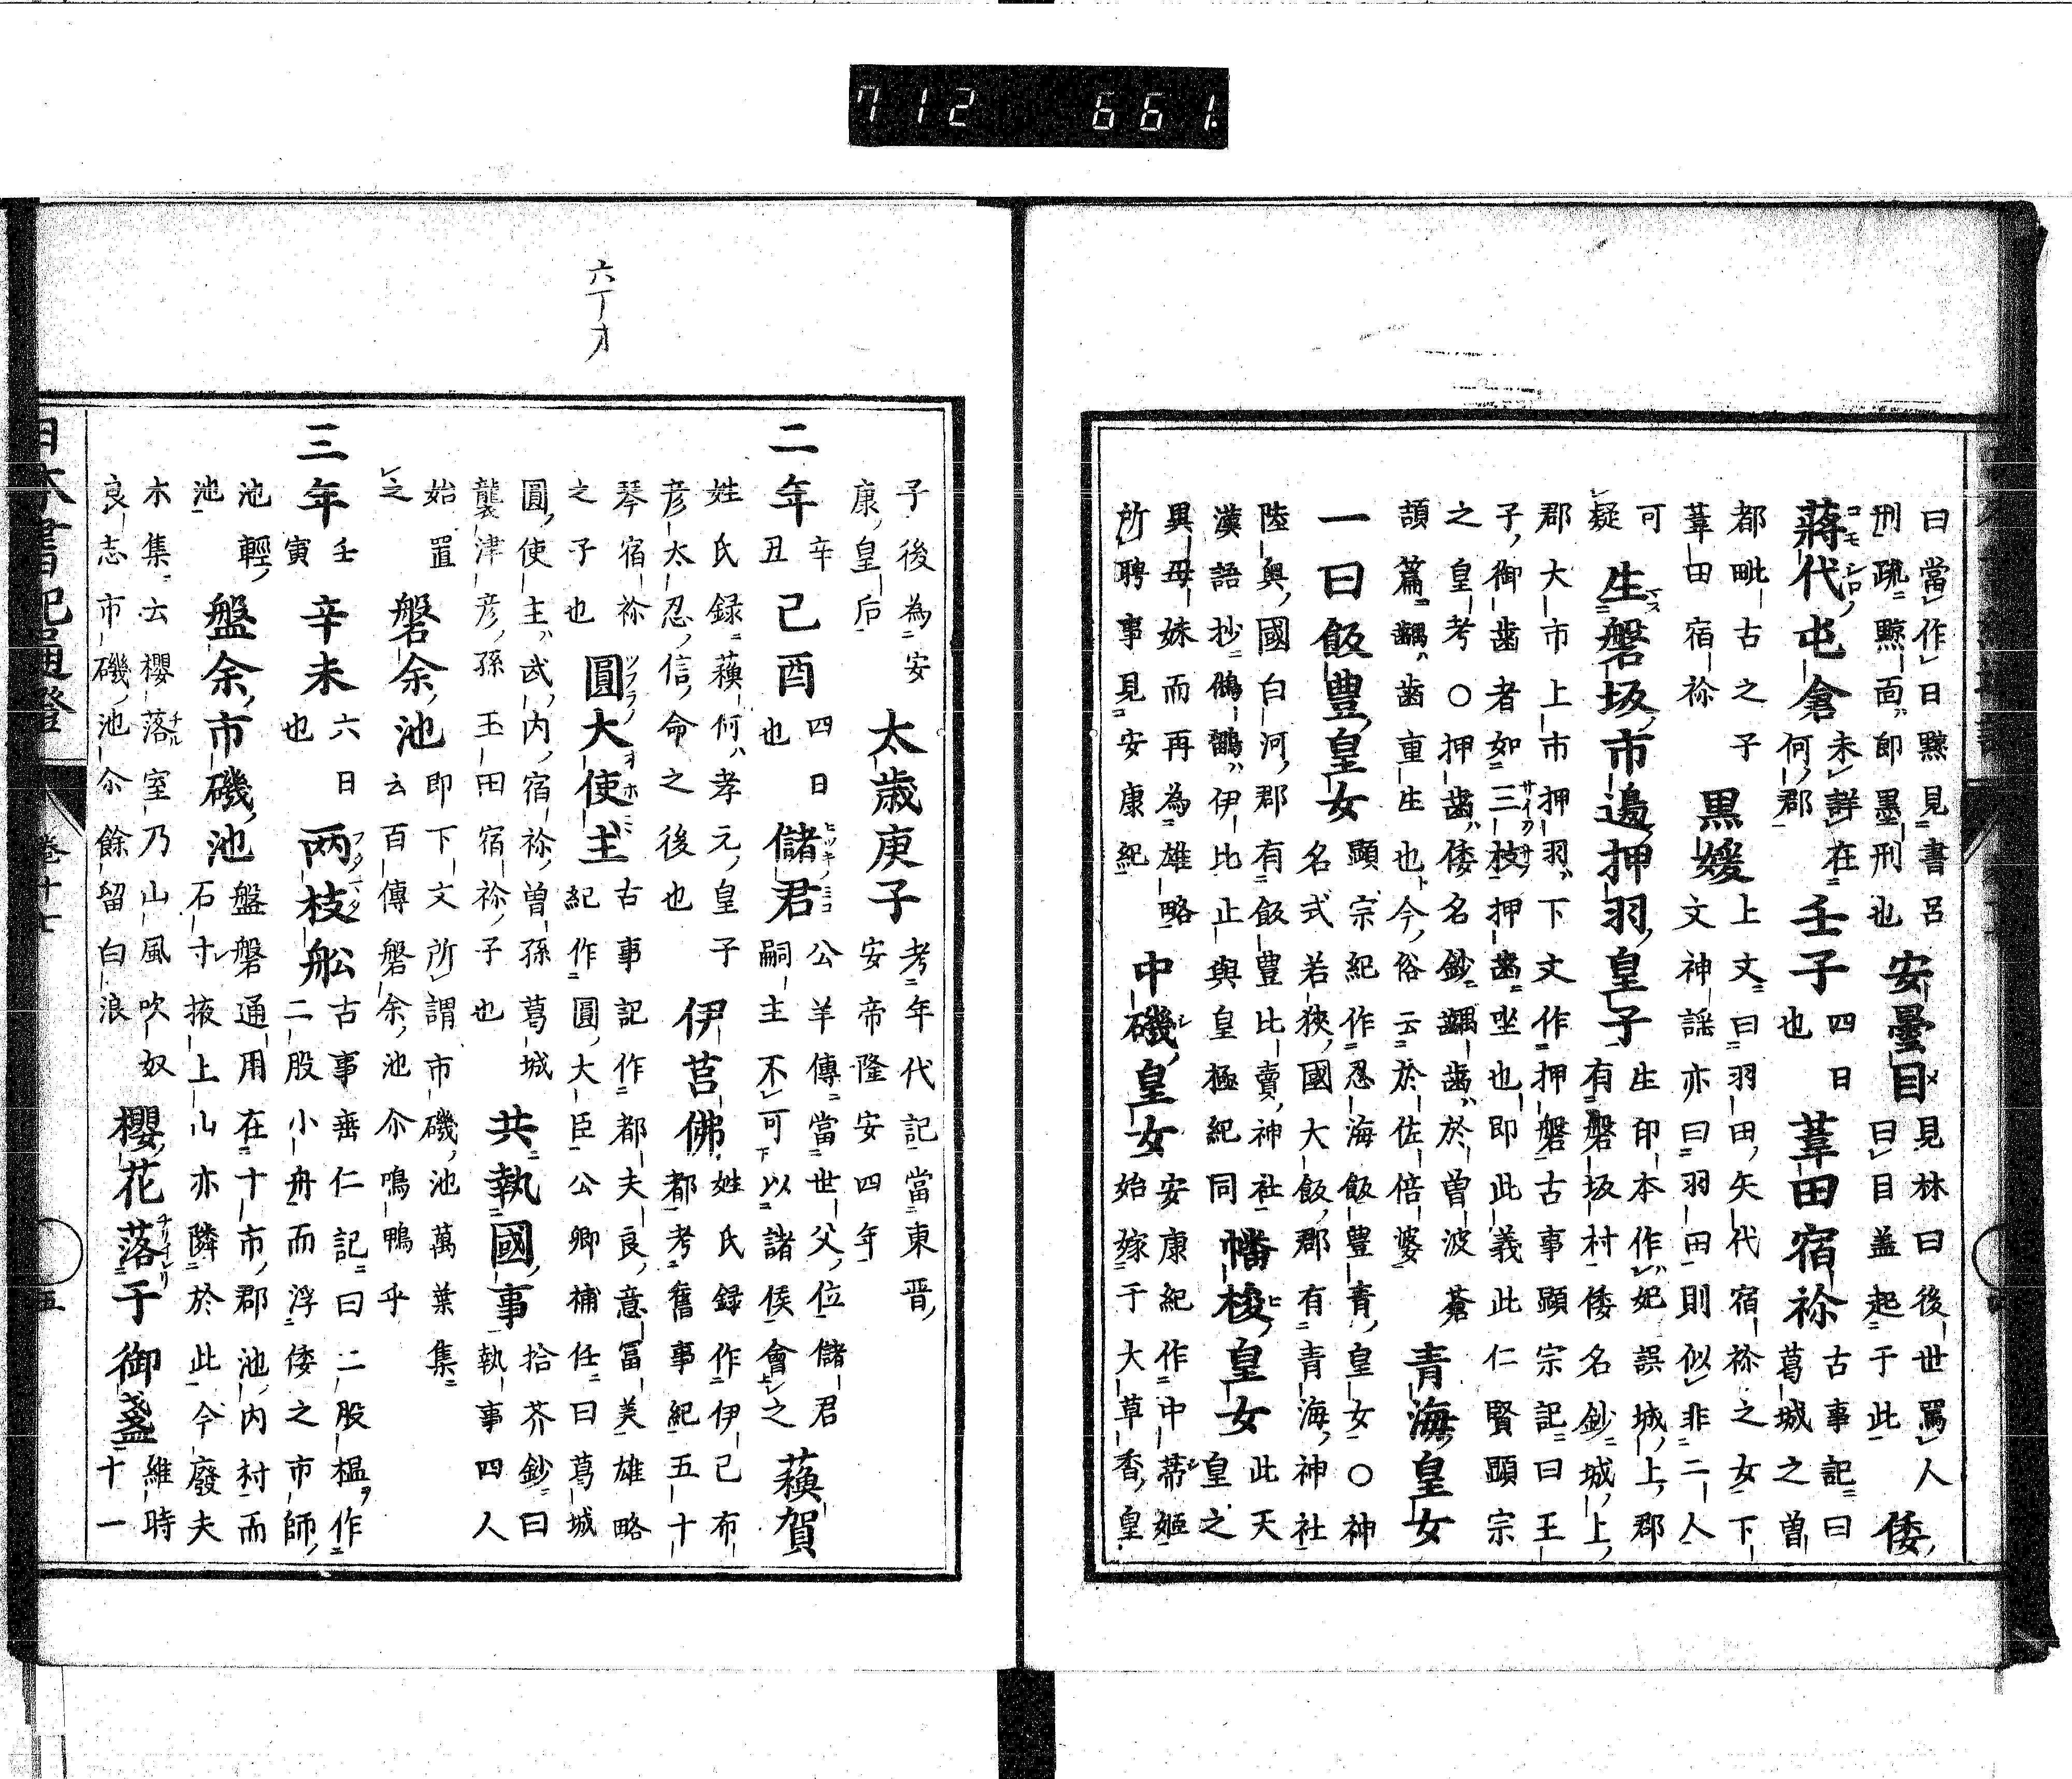 712 661.
曰當作日黥見書呂
刑疏黥面即墨刑也
安曇目
見林曰後世罵人
曰目盖起于此
倭
蔣代屯倉
コモシロ
未詳在
何郡
壬子
四日
也
葦田宿祢
古事記曰
葛城之曽
都毗古之子
葦田宿祢
黒媛
上文曰羽田矢代宿祢之女下
文神謡亦曰羽田則似非二人
可
疑
生磐坂市邊押羽皇子
生印本作妃誤城上郡
有磐坂村倭名鈔城上
郡大市上市押羽下文作押磐古事顕宗記曰王
子御歯者如三枝押歯坐也即此義此仁賢顕宗
之皇考○押歯倭名鈔齵歯於曽波蒼
頡篇齵歯重生也今俗云於佐倍婆
青海皇女
一曰飯豊皇女
顕宗紀作忍海飯豊青皇女○神
名式若狭國大飯郡有青海神社
陸奥國白河郡有飯豊比賣神社
漢語抄鵂鶹伊比止與皇極紀同
幡梭皇女
此天
皇之
異母妹而再為雄略
所聘事見安康紀
中磯皇女
安康紀作中蒂姫
始嫁于大草香皇
六丁オ
子後為安
康皇后
太歳庚子
考年代記當東晋
安帝隆安四年
二年
辛
丑
己酉
四日
也
儲君
ヒツキノミコ
公羊傳當世父位儲君
嗣主不可以諸侯會之
蘓賀
姓氏録蘓何孝元皇子
彦太忍信命之後也
伊莒佛
姓氏録作伊己布
都考舊事紀五十
琴宿祢
之子也
圓大使主
ツフラノオホミ
古事記作都夫良意冨美雄略
紀作圓大臣公卿補任曰葛城
圓使主武内宿祢曽孫葛城
襲津彦孫玉田宿祢子也
共執國事
拾芥鈔曰
執事四人
始置
之
磐余池
即下文所謂市磯池萬葉集
云百傳磐余池尒鳴鴨乎
三年
壬
寅
辛未
六日
也
兩枝舩
フタマタ
古事垂仁記曰二股榅作
二股小舟而浮倭之市師
池輕
池
盤余市磯池
盤磐通用在十市郡池内村而
石寸掖上山亦隣於此今廢夫
木集云櫻落室乃山風吹奴
良志市磯池尒餘留白浪
櫻花落于御盞
チリイレリ
維時
十一
日本書紀通證 卷十七 五